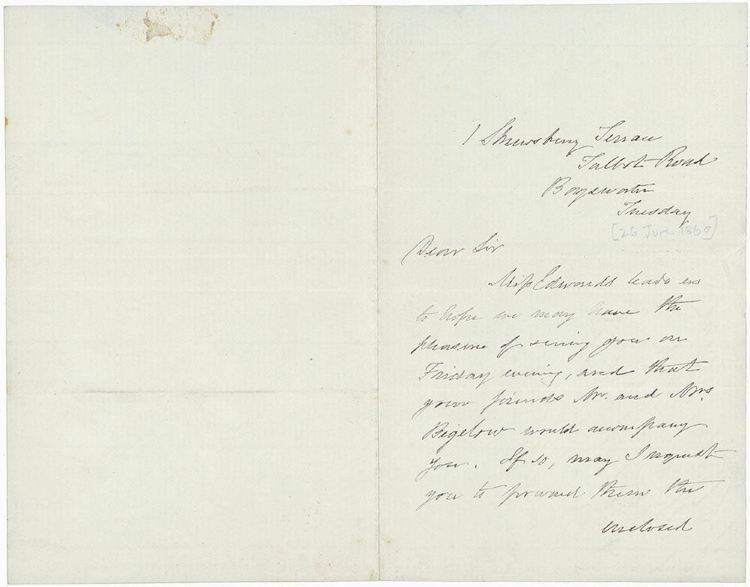 1 Shrewsbury Terrace
Talbot Road
Bayswater
Tuesday
[26 June 1860]
Dear Sir
Miss Edwards leads us
to hope we may have the
pleasure of seeing you on
Friday evening, and that
your friends Mr. and Mrs.
Bigelow would accompany
you. If so, may I request
you to forward them the
enclosed